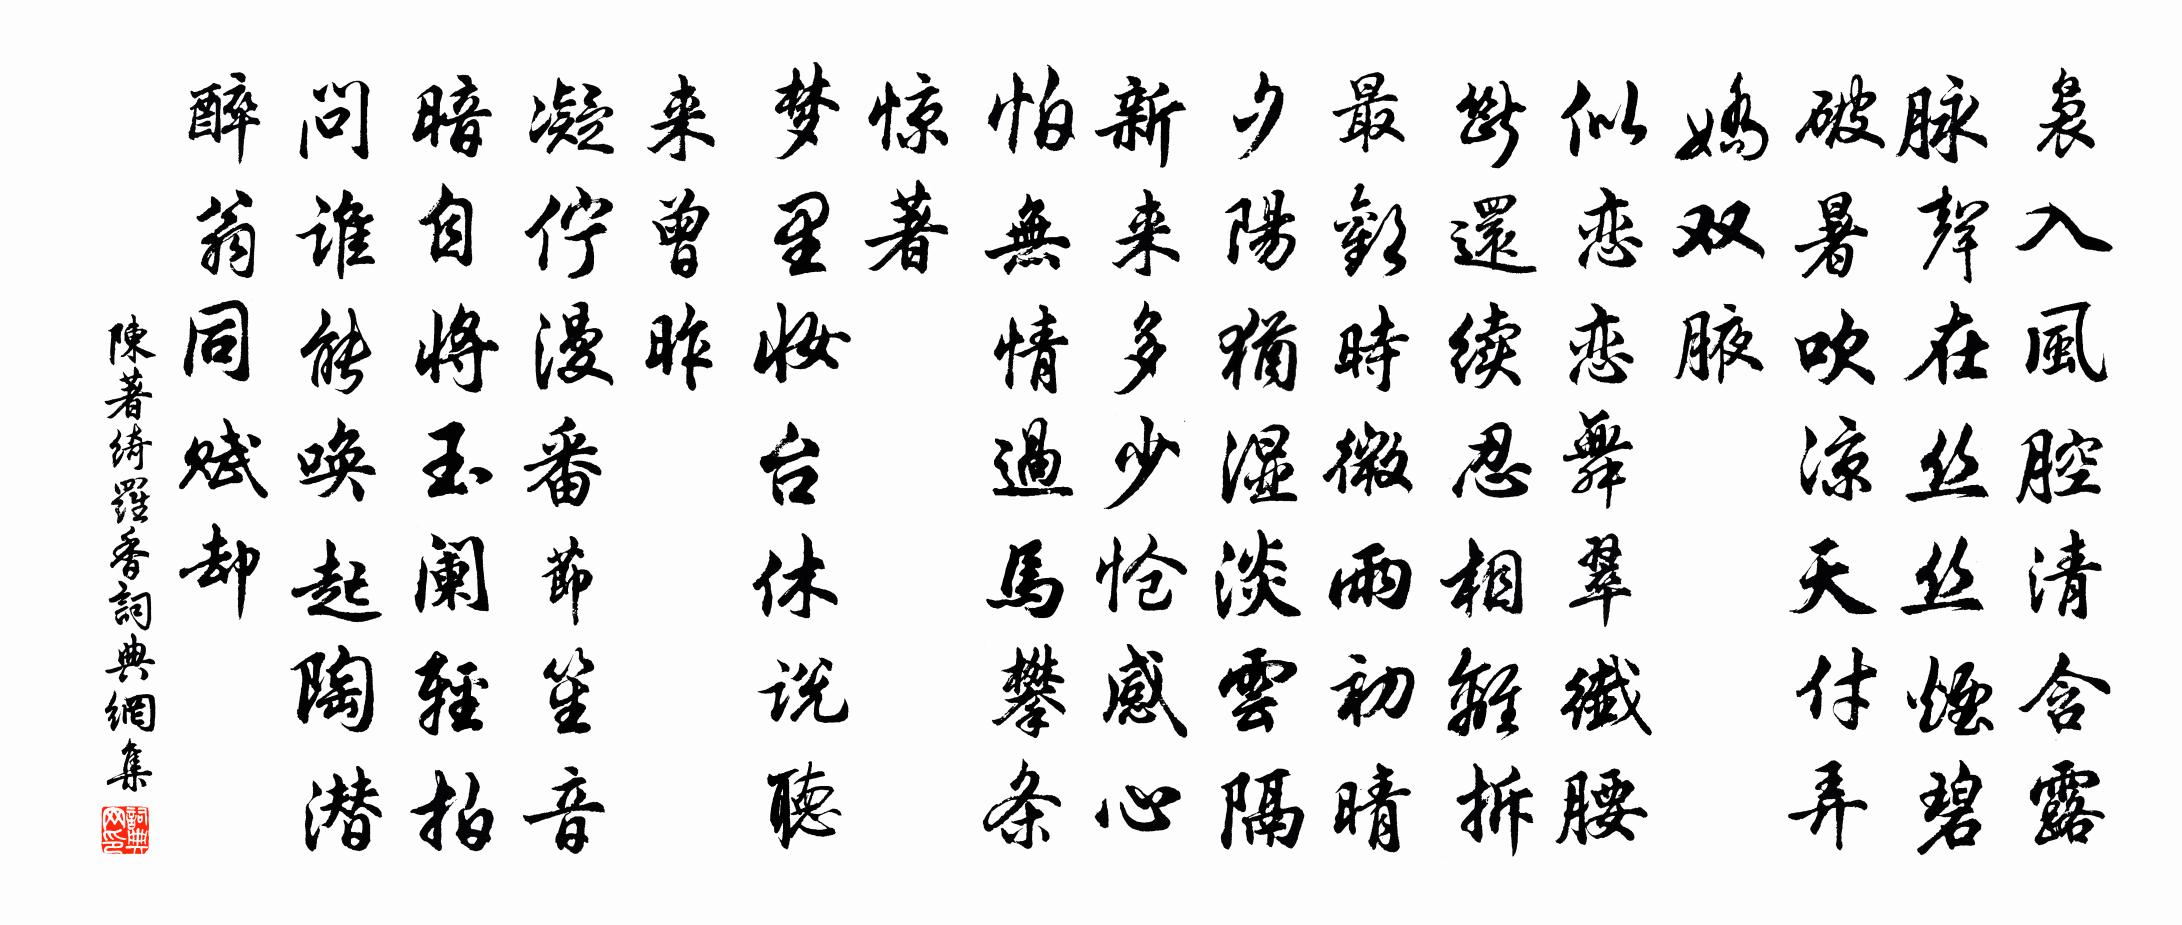 袅入風腔清含露
脉聲在丝丝煙碧
破暑吹凉天付弄
娇双腋
似恋恋舞翠纖腰
斷還续忍相離拆
最歡時微雨初晴
夕陽猶湿淡雲隔
新来多少怆感心
怕無情過馬攀条
惊著
梦里妆台休说聽
来曾昨
凝佇漫番節笙音
暗自将玉阑輕拍
問谁能唤起陶潜
醉翁同赋却
陳著綺羅香詞典網集
詞典网印